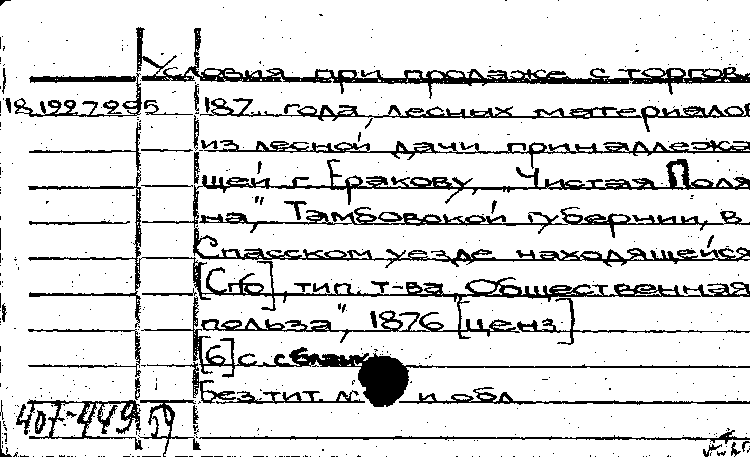 Условия при продаже с торгов
18.199.7.295 187... года, лесных материалов
из лесной дачи принадлежа
щей г. Еракову, „Чистая Поля
на," Тамбовской губернии, в
Спасском уезде находящейся
[Спб], тип. т-ва „Общественная
польза", 1876 [ценз.]
[6] с. с бланк
Без тит. л. и обл.
407-449 59